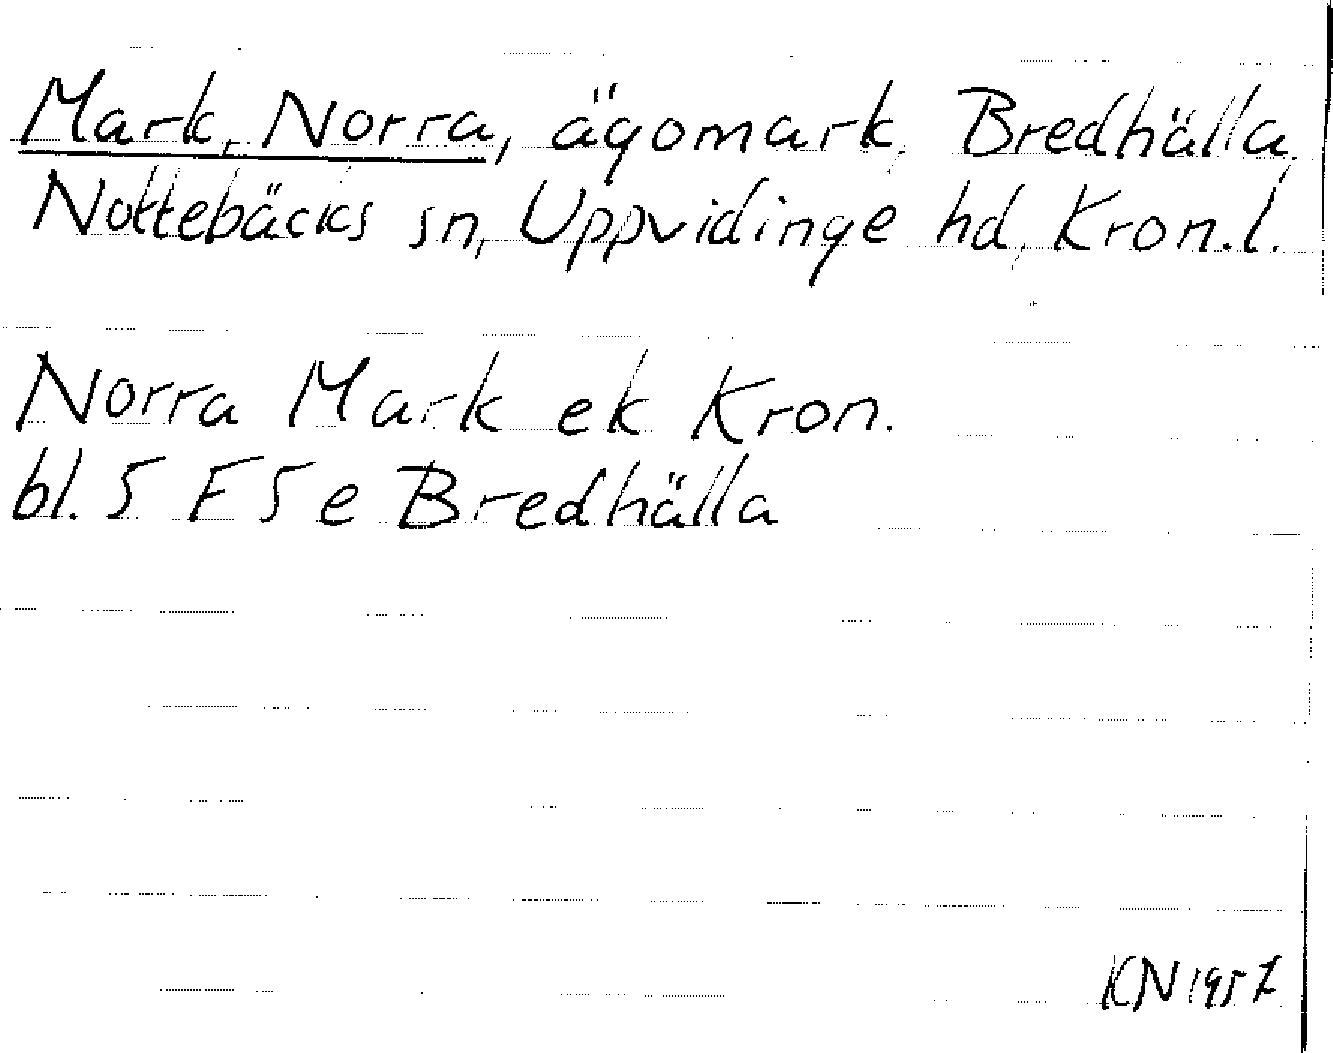 Mark, Norra, ägomark, Bredhälla,
Nottebäcks sn, Uppvidinge hd, Kron.l.
Norra Mark ek Kron.
bl. 5 F5e Bredhälla
KN 1957